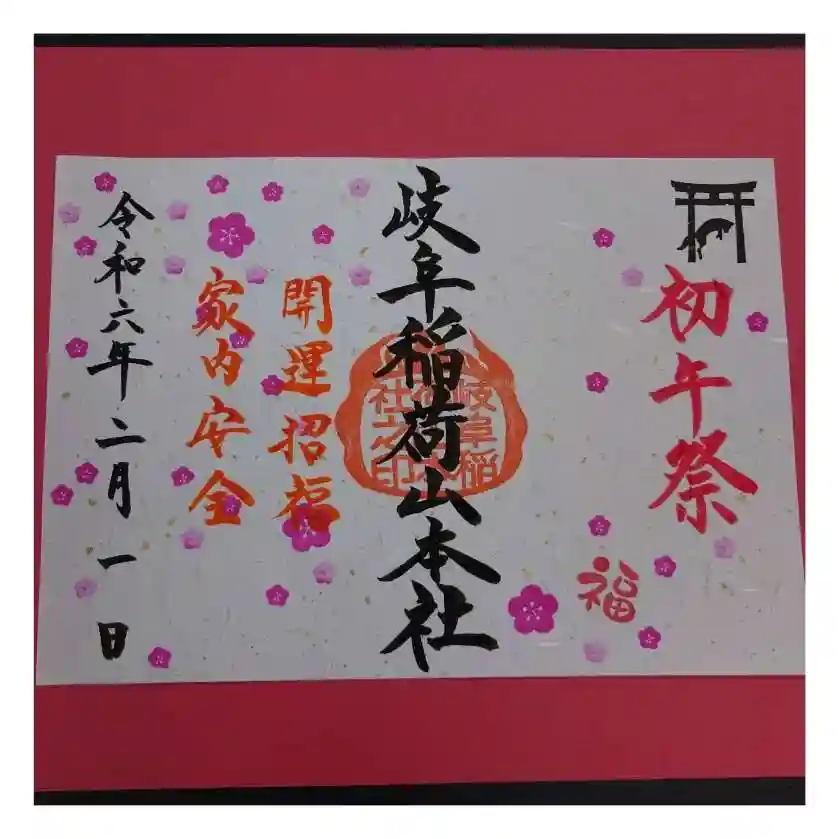 初午祭
福
岐阜稲荷山本社
岐阜稲
荷山本
社之印
開運招福
家内安全
令和六年二月一日